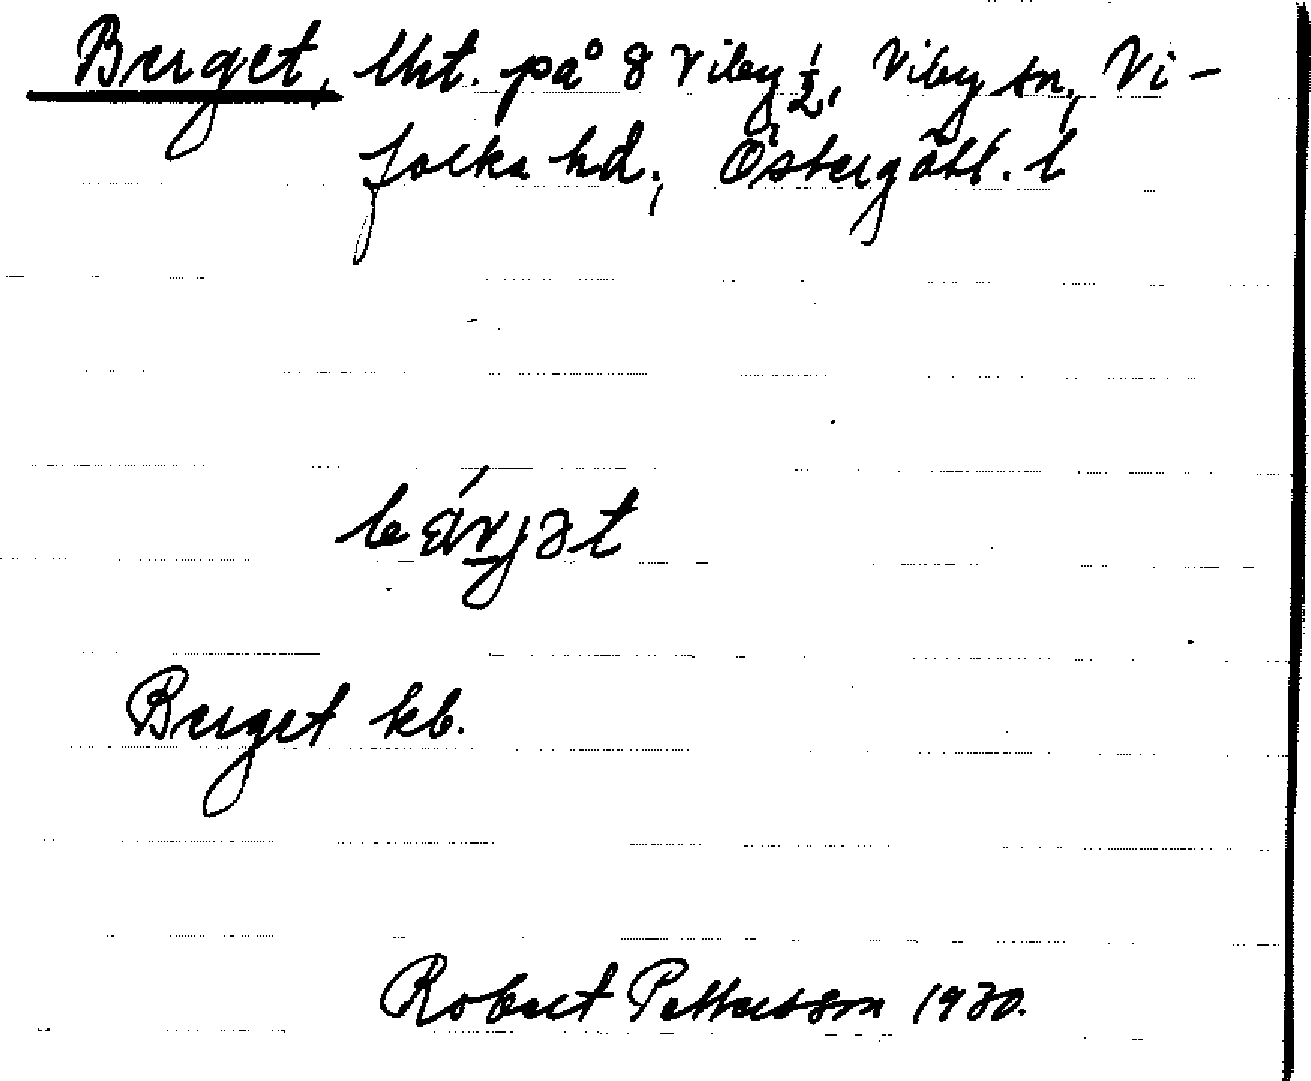 Berget, lht. på 8 Viby ½, Viby sn, Vi-
folka hd., Östergötl. l
bärjət
Berget kb.
Robert Pettersson 1930.